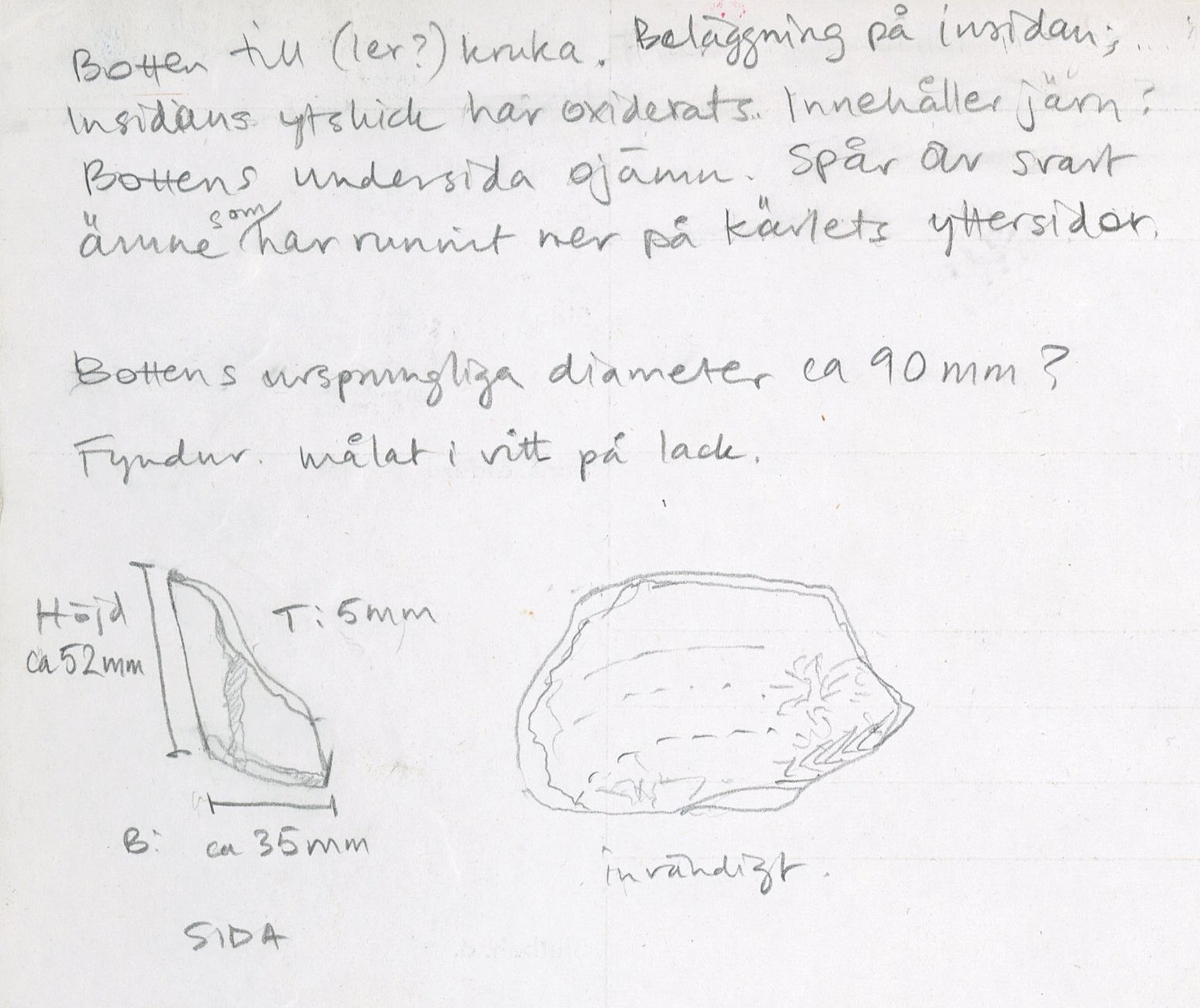 Botten till (ler?) kruka. Beläggning på insidan;
Insidans ytskick har oxiderats. Innehåller järn?
Bottens undersida ojämn. Spår av svart
ämne som har runnit ner på kärlets yttersidor.
Bottens ursprungliga diameter ca 90 mm?
Fyndnr. målat i vitt på lack.
Höjd
ca 52 mm
T: 5 mm
B: ca 35 mm
invändigt.
SIDA